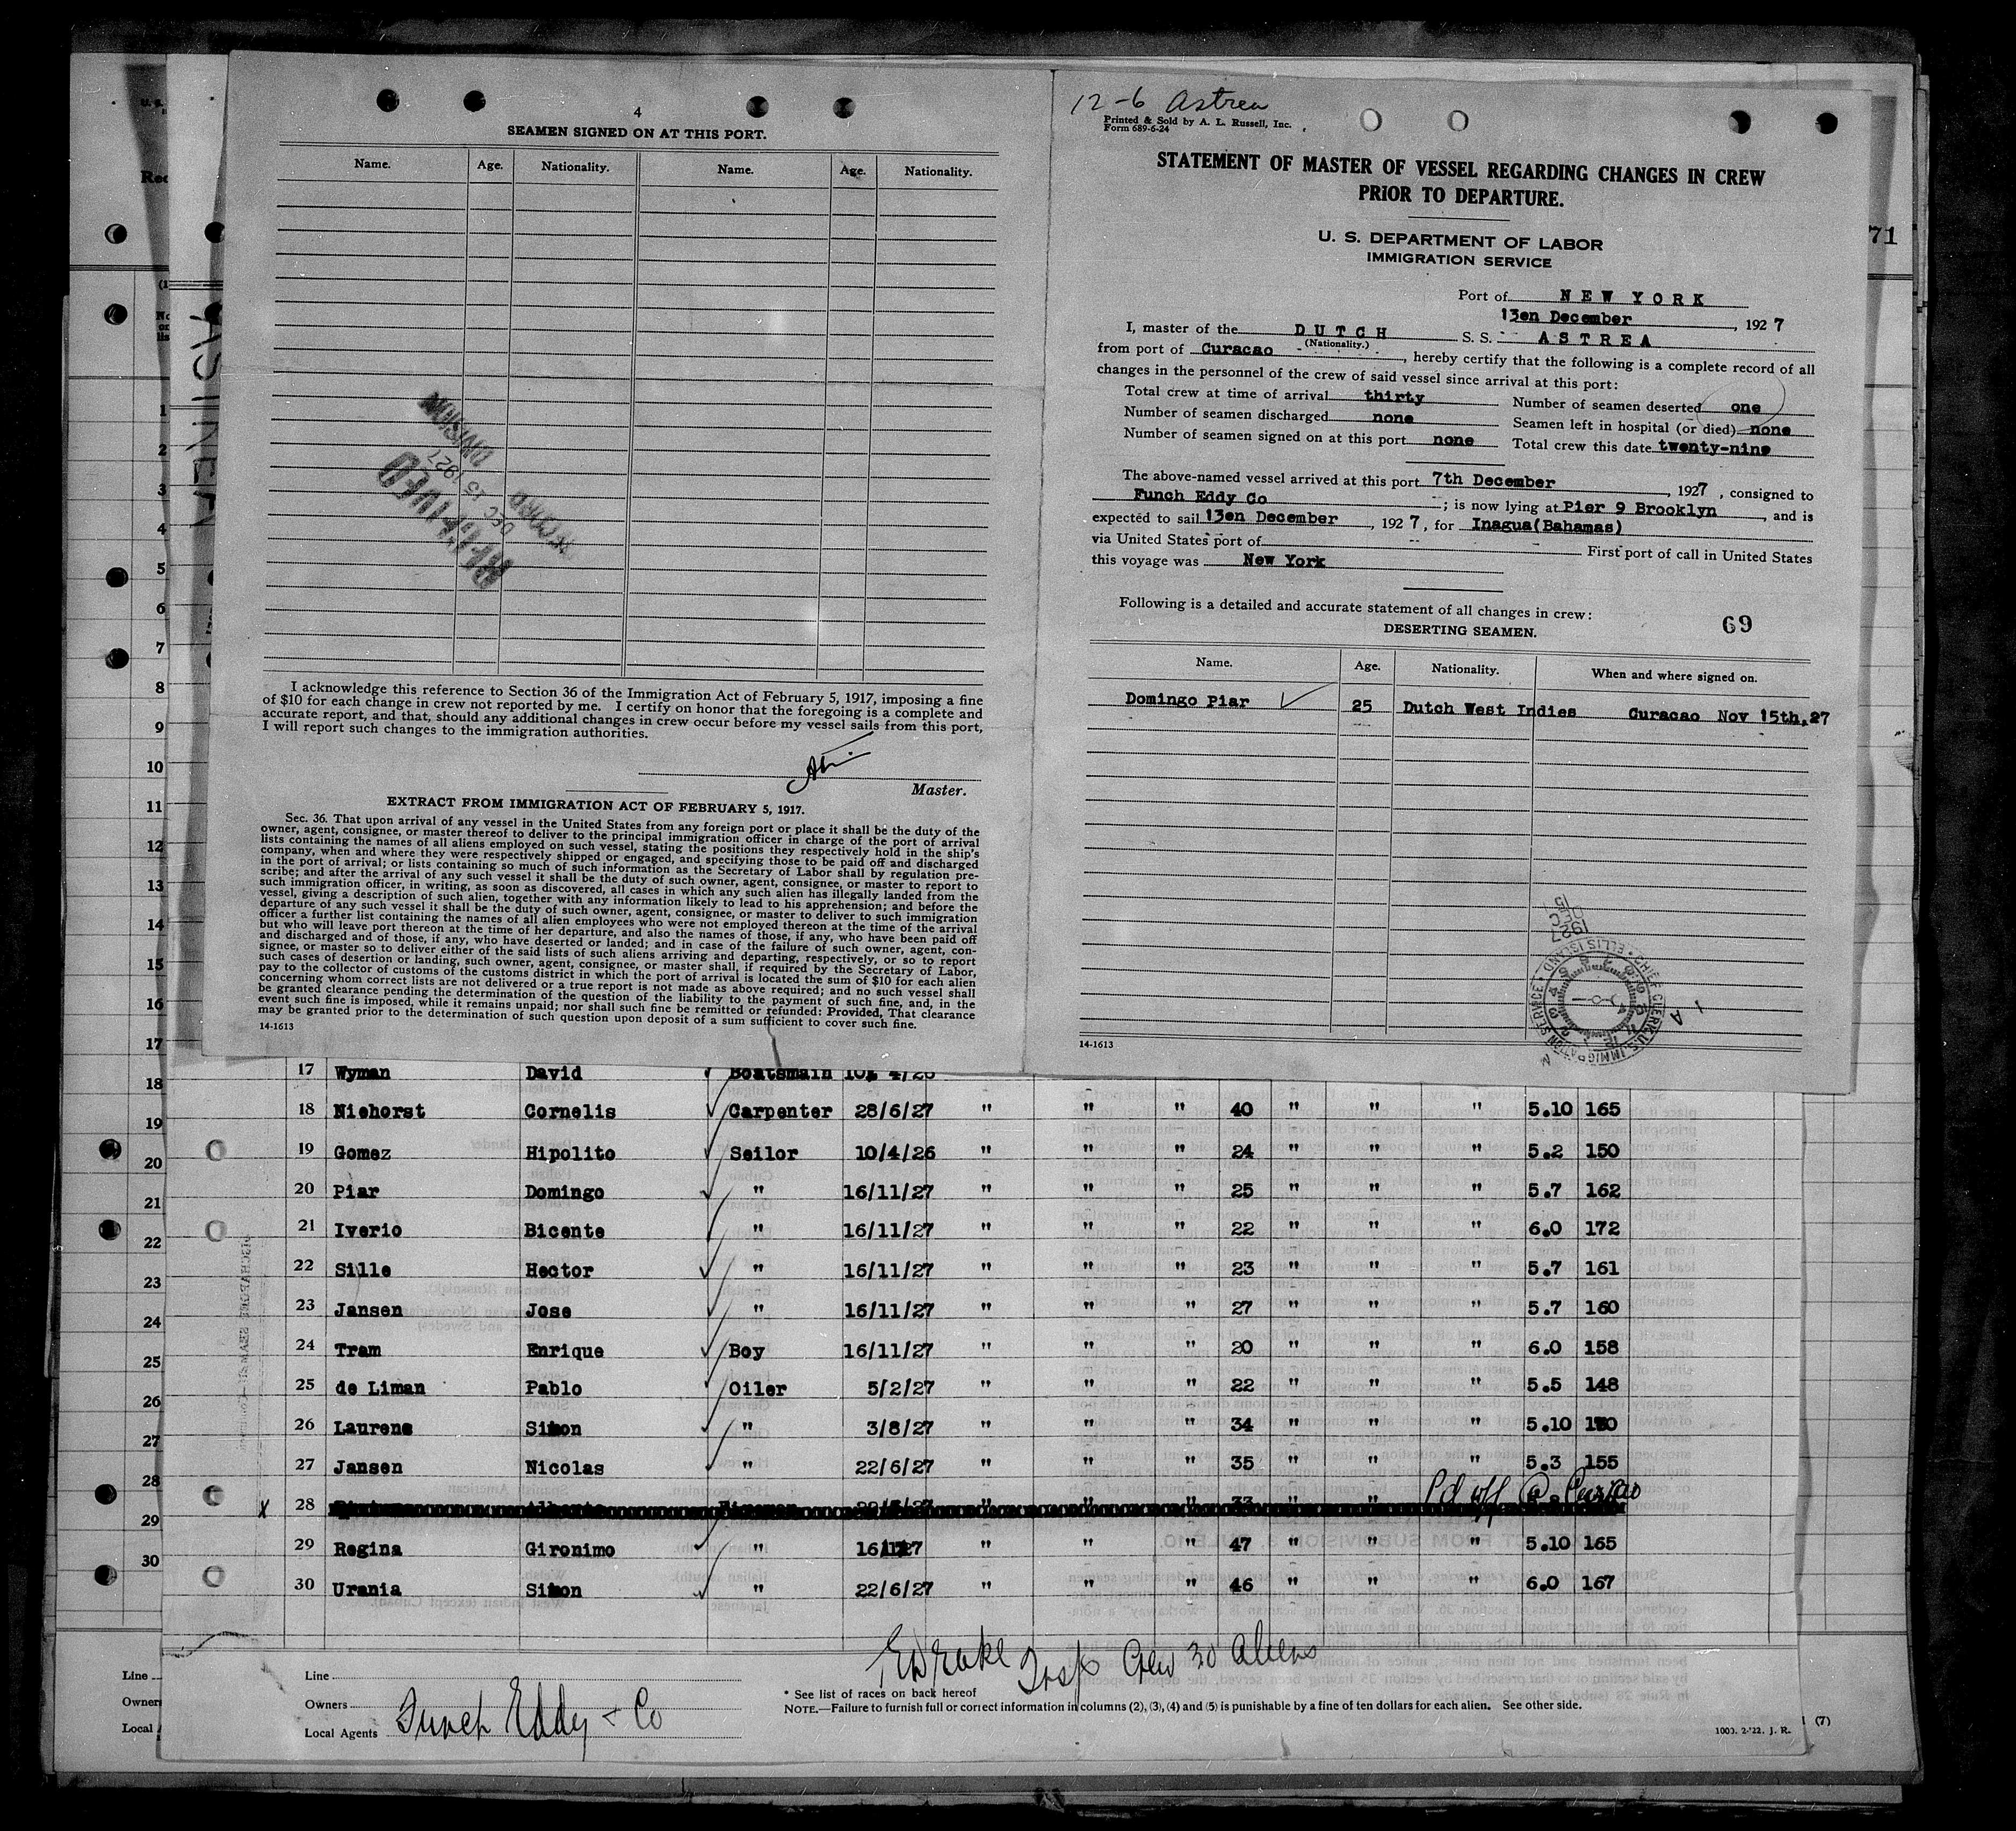 4
SEAMEN SIGNED ON AT THIS PORT.
Name. Age. Nationality. Name. Age. Nationality.
DIVISION
DEC 15 1927
RECORD
I acknowledge this reference to Section 36 of the Immigration Act of February 5, 1917, imposing a fine
of $10 for each change in crew not reported by me. I certify on honor that the foregoing is a complete and
accurate report, and that, should any additional changes in crew occur before my vessel sails from this port,
I will report such changes to the immigration authorities.
Master.
EXTRACT FROM IMMIGRATION ACT OF FEBRUARY 5, 1917.
Sec. 36. That upon arrival of any vessel in the United States from any foreign port or place it shall be the duty of the
owner, agent, consignee, or master thereof to deliver to the principal immigration officer in charge of the port of arrival
lists containing the names of all aliens employed on such vessel, stating the positions they respectively hold in the ship's
company, when and where they were respectively shipped or engaged, and specifying those to be paid off and discharged
in the port of arrival; or lists containing so much of such information as the Secretary of Labor shall by regulation pre-
scribe; and after the arrival of any such vessel it shall be the duty of such owner, agent, consignee, or master to report to
such immigration officer, in writing, as soon as discovered, all cases in which any such alien has illegally landed from the
vessel, giving a description of such alien, together with any information likely to lead to his apprehension; and before the
departure of any such vessel it shall be the duty of such owner, agent, consignee, or master to deliver to such immigration
officer a further list containing the names of all alien employees who were not employed thereon at the time of the arrival
but who will leave port thereon at the time of her departure, and also the names of those, if any, who have been paid off
and discharged and of those, if any, who have deserted or landed; and in case of the failure of such owner, agent, con-
signee, or master so to deliver either of the said lists of such aliens arriving and departing, respectively, or so to report
such cases of desertion or landing, such owner, agent, consignee, or master shall, if required by the Secretary of Labor,
pay to the collector of customs of the customs district in which the port of arrival is located the sum of $10 for each alien
concerning whom correct lists are not delivered or a true report is not made as above required; and no such vessel shall
be granted clearance pending the determination of the question of the liability to the payment of such fine, and, in the
event such fine is imposed, while it remains unpaid; nor shall such fine be remitted or refunded: Provided, That clearance
may be granted prior to the determination of such question upon deposit of a sum sufficient to cover such fine.
14-1613
12-6 Astrea
Printed & Sold by A. L. Russell, Inc.
Form 689-6-24
STATEMENT OF MASTER OF VESSEL REGARDING CHANGES IN CREW
PRIOR TO DEPARTURE.
U. S. DEPARTMENT OF LABOR
IMMIGRATION SERVICE
Port of NEW YORK
13en December, 1927
I, master of the DUTCH S. S. ASTREA
(Nationality.)
from port of Curacao, hereby certify that the following is a complete record of all
changes in the personnel of the crew of said vessel since arrival at this port:
Total crew at time of arrival thirty Number of seamen deserted one
Number of seamen discharged none Seamen left in hospital (or died) none
Number of seamen signed on at this port none Total crew this date twenty-nine
The above-named vessel arrived at this port 7th December, 1927, consigned to
Funch Eddy Co; is now lying at Pier 9 Brooklyn, and is
expected to sail 13en December, 1927, for Inagua(Bahamas)
via United States port of First port of call in United States
this voyage was New York
Following is a detailed and accurate statement of all changes in crew:
DESERTING SEAMEN.
69
Name. Age. Nationality. When and where signed on.
Domingo Piar 25 Dutch West Indies Curacao Nov 15th,27
CHIEF CLERK U.S. IMMIGRATION SERVICE
1927 DEC 15
14-1613
71
ASTREA
1
2
3
4
5
6
7
8
9
10
11
12
13
14
15
16
17
18
19
20
21
22
23
24
25
26
27
28
29
30
17 Wyman David Boatsmain
18 Niehorst Cornelis Carpenter 28/6/27 " " " 40 " " " 5.10 165
19 Gomez Hipolito Seilor 10/4/26 " " " 24 " " " 5.2 150
20 Piar Domingo " 16/11/27 " " " 25 " " " 5.7 162
21 Iverio Bicente " 16/11/27 " " " 22 " " " 6.0 172
22 Sille Hector " 16/11/27 " " " 23 " " " 5.7 161
23 Jansen Jose " 16/11/27 " " " 27 " " " 5.7 160
24 Tram Enrique Boy 16/11/27 " " " 20 " " " 6.0 158
25 de Liman Pablo Oiler 5/2/27 " " " 22 " " " 5.5 148
26 Laurens Simon " 3/8/27 " " " 34 " " " 5.10
27 Jansen Nicolas " 22/6/27 " " " 35 " " " 5.3 155
x 28 Pd off @ Curacao
29 Regina Gironimo " " " " 47 " " " 5.10 165
30 Urania Simon " 22/6/27 " " " 46 " " " 6.0 167
Insp Crew 30 Aliens
Line
Owners
Local Agents Funch Eddy & Co
* See list of races on back hereof
NOTE.—Failure to furnish full or correct information in columns (2), (3), (4) and (5) is punishable by a fine of ten dollars for each alien. See other side.
1000. 2-'22. J. R.
(7)
Line
Owners
Local